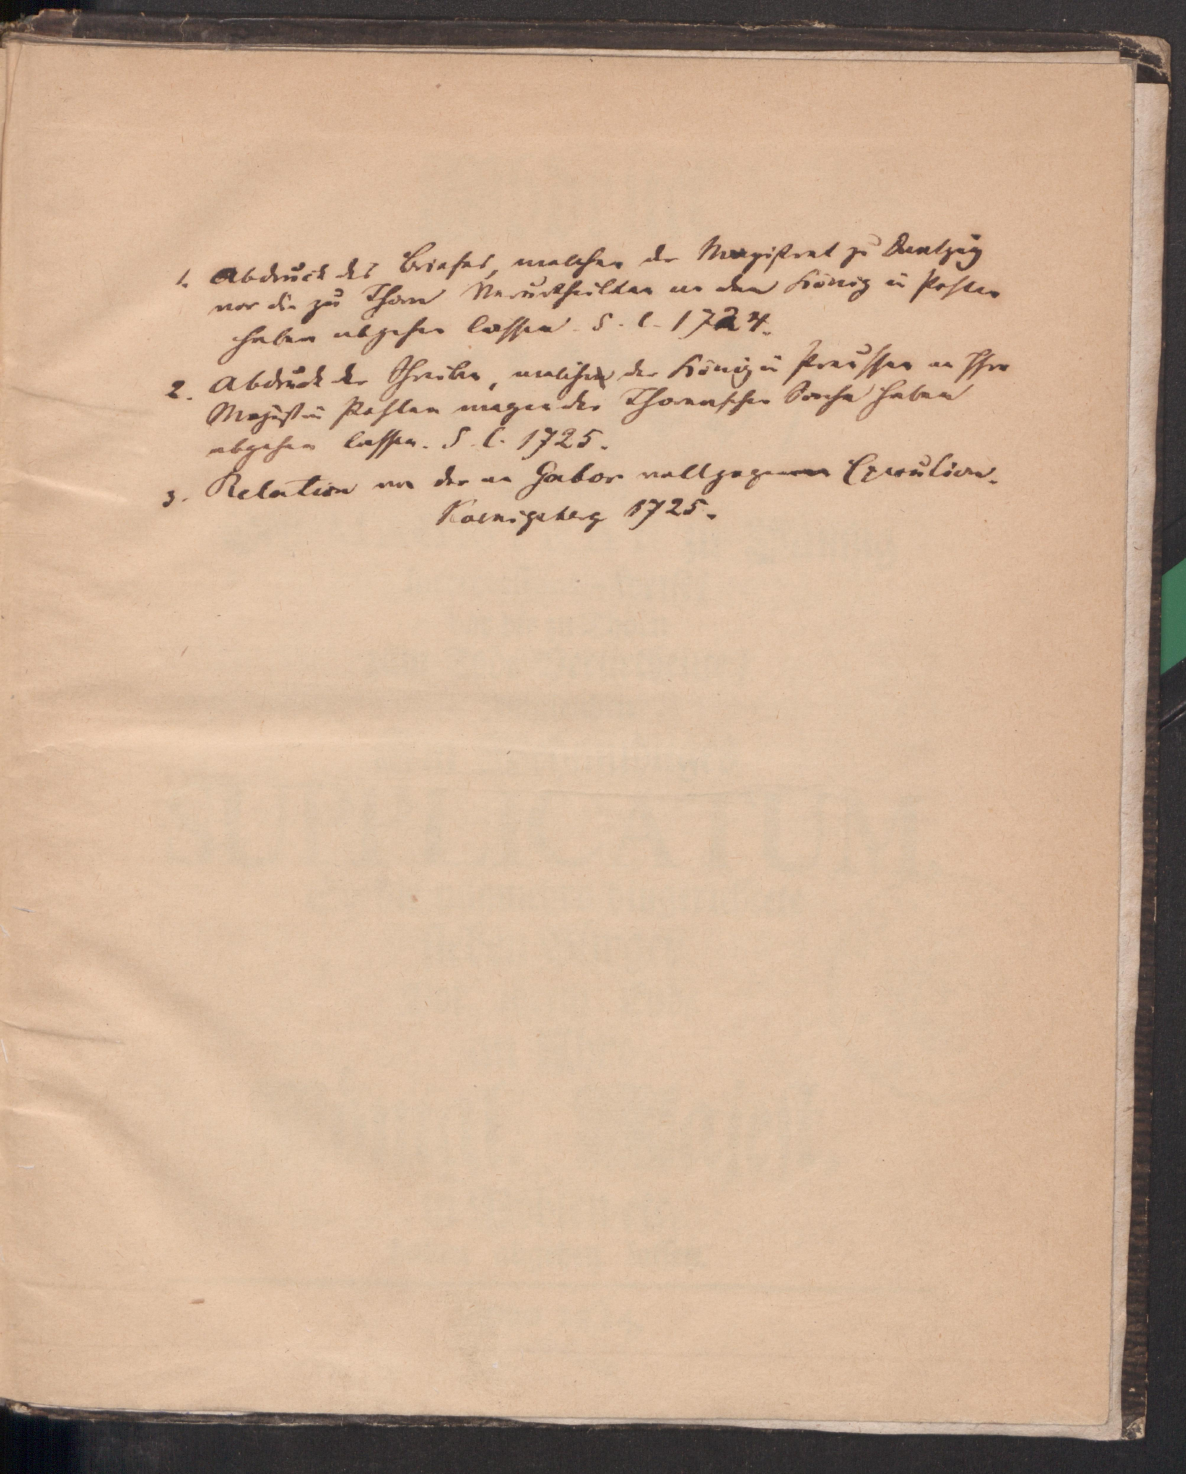 1. Abdruck des Briefes, welchen der Magistrat zu Dantzig
vor die zu Thorn Verurtheilten an den König in Pohlen
haben abgehen lassen. S. l. 1724.
2. Abdruck der Schreiben, welche der König in Preussen an Ihro
Majest. in Pohlen wegen der Thornischen Sache haben
abgehen lassen. S. l. 1725.
3. Relation von der an Gabor vollzogenen Execution.
Koenigsberg 1725.